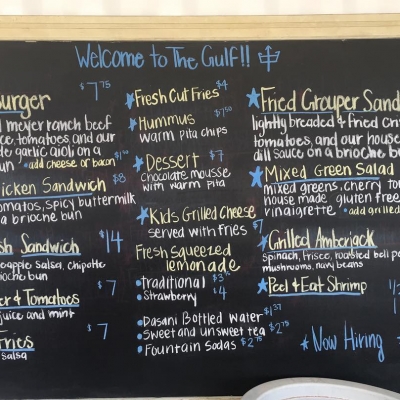 Welcome to The Gulf!!
urger $7.75
meyer ranch beef
ce, tomatoes, and our
e garlic aioli on a
un • add cheese or bacon $1.00
icken Sandwich $8
omatos, spicy buttermilk
a brioche bun
sh Sandwich $14
eapple salsa, chipotle
oche bun
er & Tomatoes $7
juice and mint
Fries $7
salsa
Fresh Cut Fries $4
Hummus $7.50
warm pita chips
Dessert $7
chocolate mousse
with warm pita
Kids Grilled Cheese
served with fries $7
Fresh Squeezed
lemonade
• traditional
• Strawberry $4
• Dasani Bottled Water
• Sweet and unsweet tea $2.75
• Fountain Sodas $2.75
Fried Grouper Sand
lightly breaded & fried
tomatoes, and our house
dill sauce on a brioche bu
Mixed Green Salad
mixed greens, cherry to
house made gluten free
vinaigrette • add grilled
Grilled Amberjack
spinach, frisee, roasted bell pe
mushrooms, navy beans
Peel & Eat Shrimp
Now Hiring